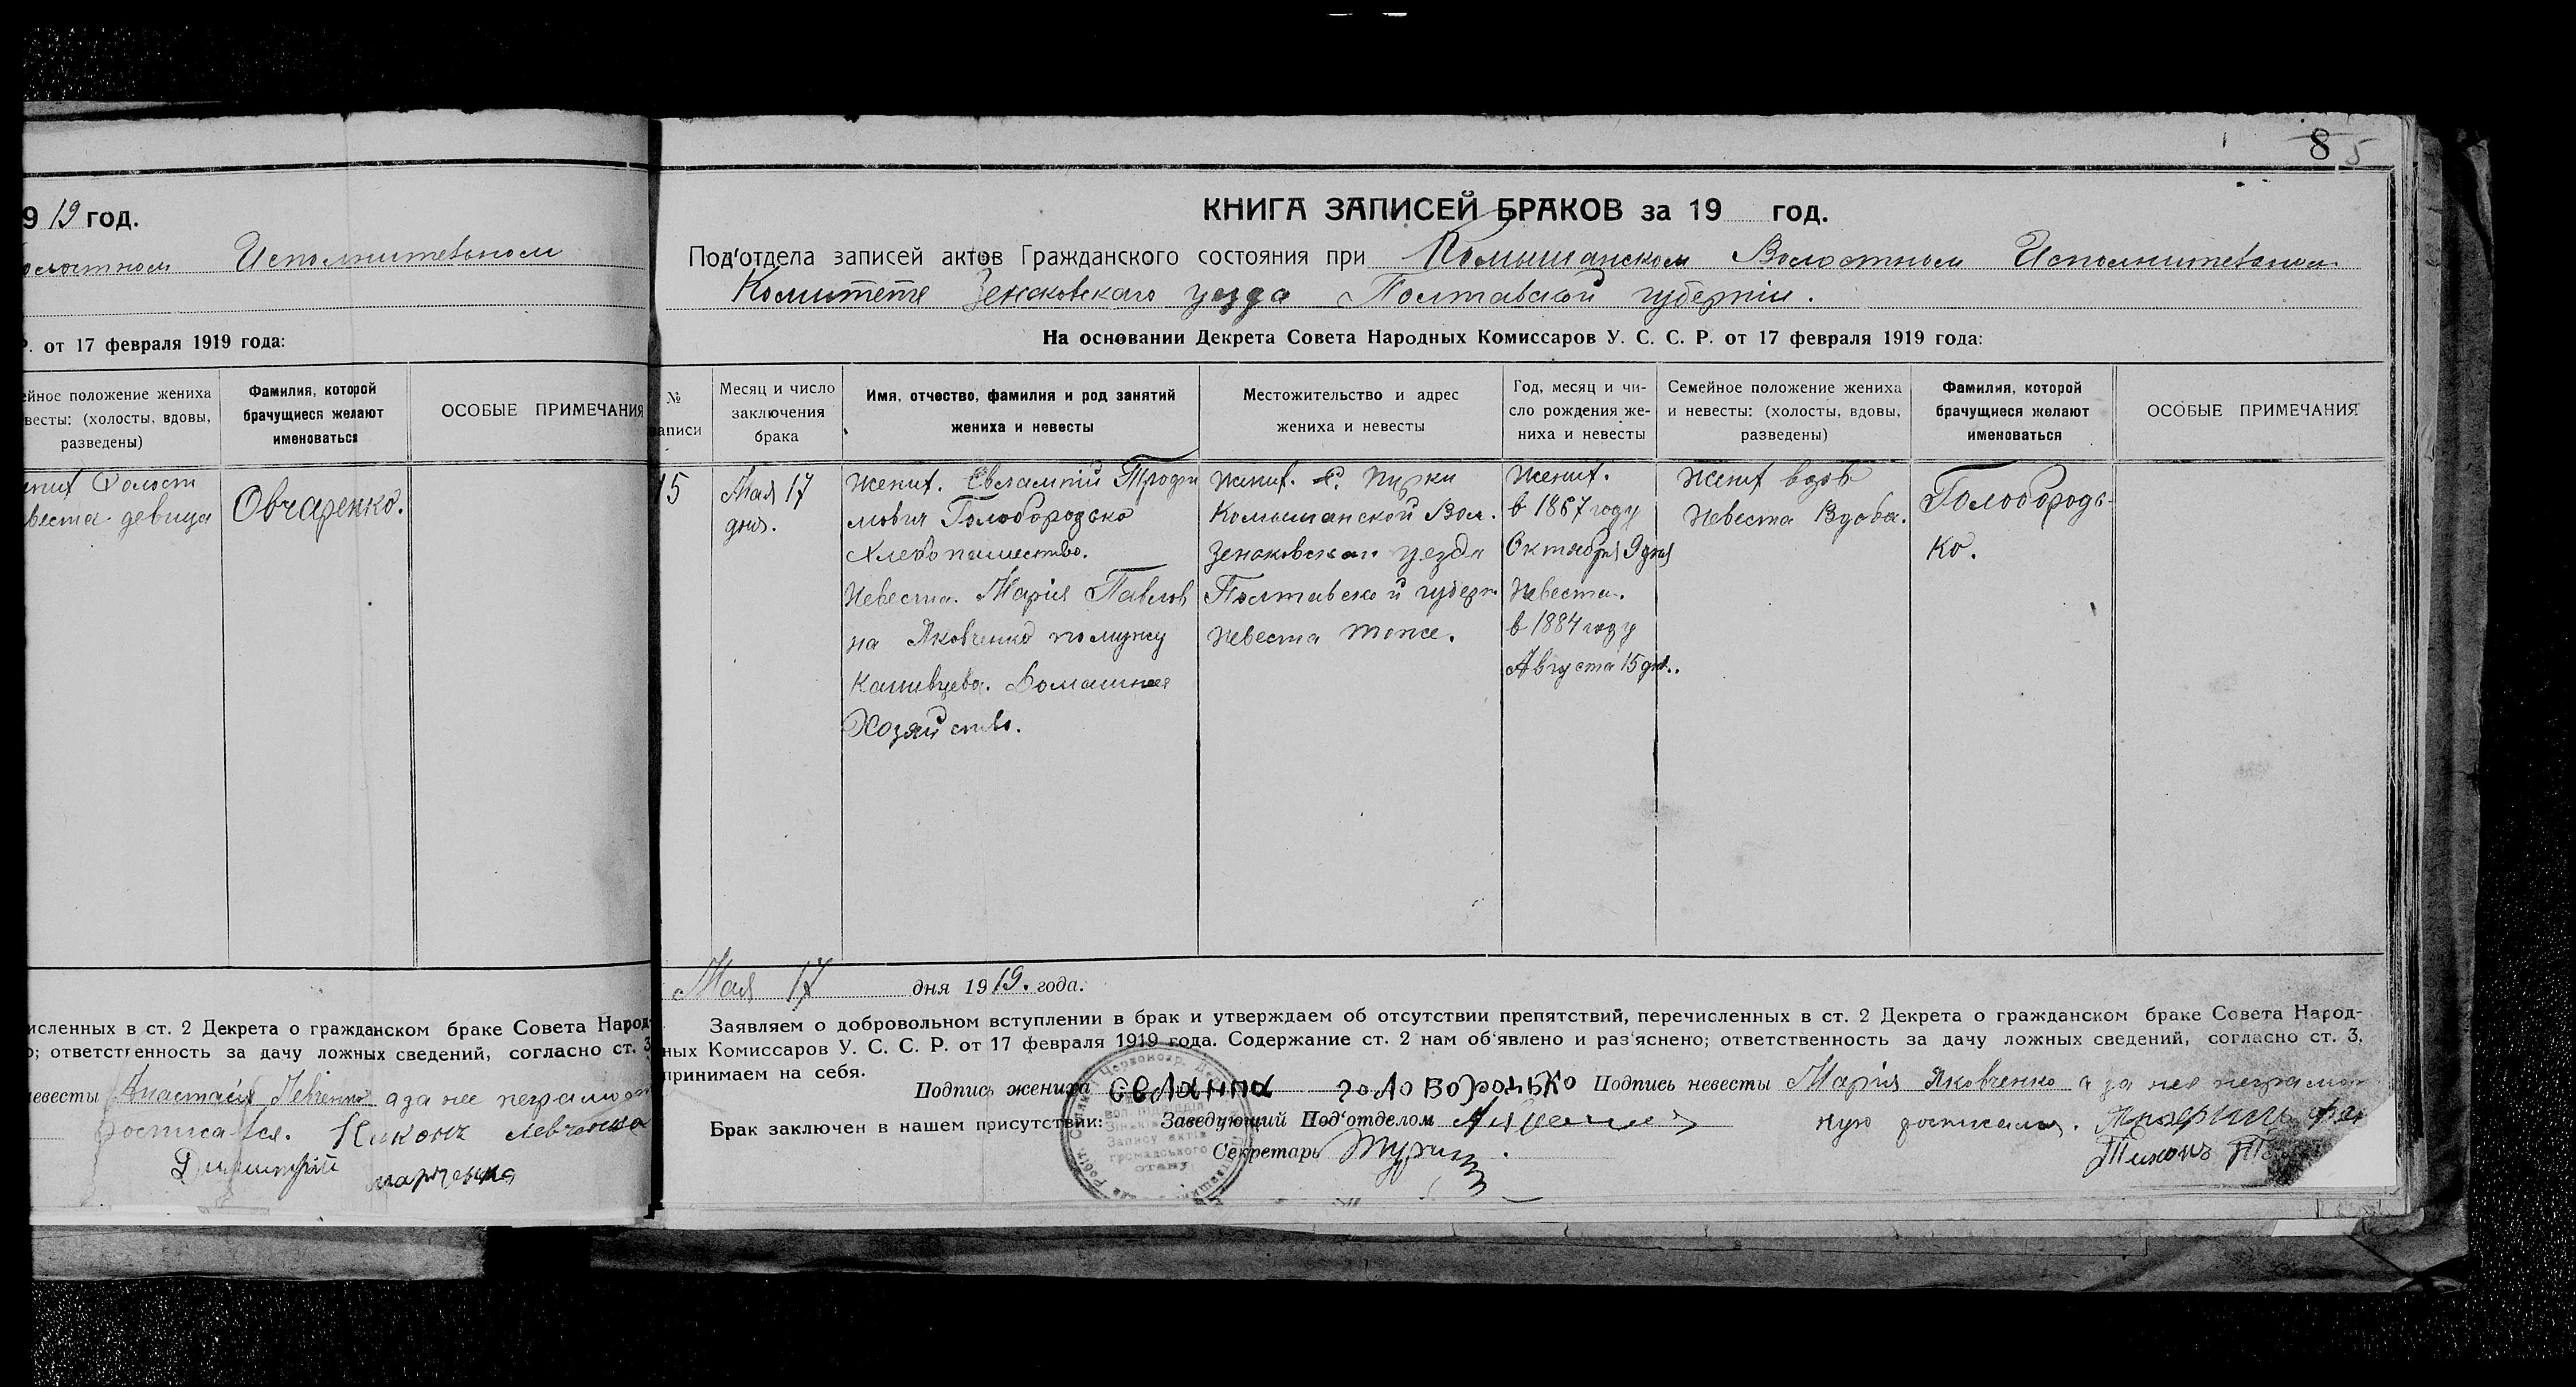 9 19 год.
Исполнительном
Р. от 17 февраля 1919 года:
ейное положение жениха
весты: (холосты, вдовы,
разведены)
Фамилия, которой
брачущиеся желают
именоваться
ОСОБЫЕ ПРИМЕЧАНИЯ
них Холост
веста девица
Овчаренко.
исленных в ст. 2 Декрета о гражданском браке Совета Народ-
о; ответственность за дачу ложных сведений, согласно ст. 3,
невесты Анастасія Левченко а за нее неграмот
росписался. Никонъ Левченко
Димитрій Марченко
8 5
КНИГА ЗАПИСЕЙ БРАКОВ за 19 год.
Под'отдела записей актов Гражданского состояния при Комышанском Волостном Исполнительном
Комитете Зеньковскаго уезда Полтавской губернии.
На основании Декрета Совета Народных Комиссаров У. С. С. Р. от 17 февраля 1919 года:
№
записи
Месяц и число
заключения
брака
Имя, отчество, фамилия и род занятий
жениха и невесты
Местожительство и адрес
жениха и невесты
Год, месяц и чи-
сло рождения же-
ниха и невесты
Семейное положение жениха
и невесты: (холосты, вдовы,
разведены)
Фамилия, которой
брачущиеся желают
именоваться
ОСОБЫЕ ПРИМЕЧАНИЯ
15
Мая 17
дня.
Жених. Евлампій Трофи
мович Голобородько
Хлебопашество.
Невеста. Марія Павлов
на Яковченко по мужу
Канивцева. Домашнее
Хозяйство.
Жених. с. Пирки
Комышанской Вол.
Зеньковскаго уезда
Полтавской губерн.
Невеста тоже.
Жених.
в 1867 году
Октября 9 дня
Невеста.
в 1884 году
Августа 15 дня.
Жених вдов
Невеста Вдова.
Голобородь-
ко.
Мая 17 дня 19 19. года.
Заявляем о добровольном вступлении в брак и утверждаем об отсутствии препятствий, перечисленных в ст. 2 Декрета о гражданском браке Совета Народ-
ных Комиссаров У. С. С. Р. от 17 февраля 1919 года. Содержание ст. 2 нам об'явлено и раз'яснено; ответственность за дачу ложных сведений, согласно ст. 3,
принимаем на себя.
Подпись жениха Евланпа голобородько Подпись невесты Марія Яковченко а за нея неграмот
Брак заключен в нашем присутствии: Заведующий Под'отделом
ную росписался.
Секретарь
Тихонъ
Запису актів
громадського
стану